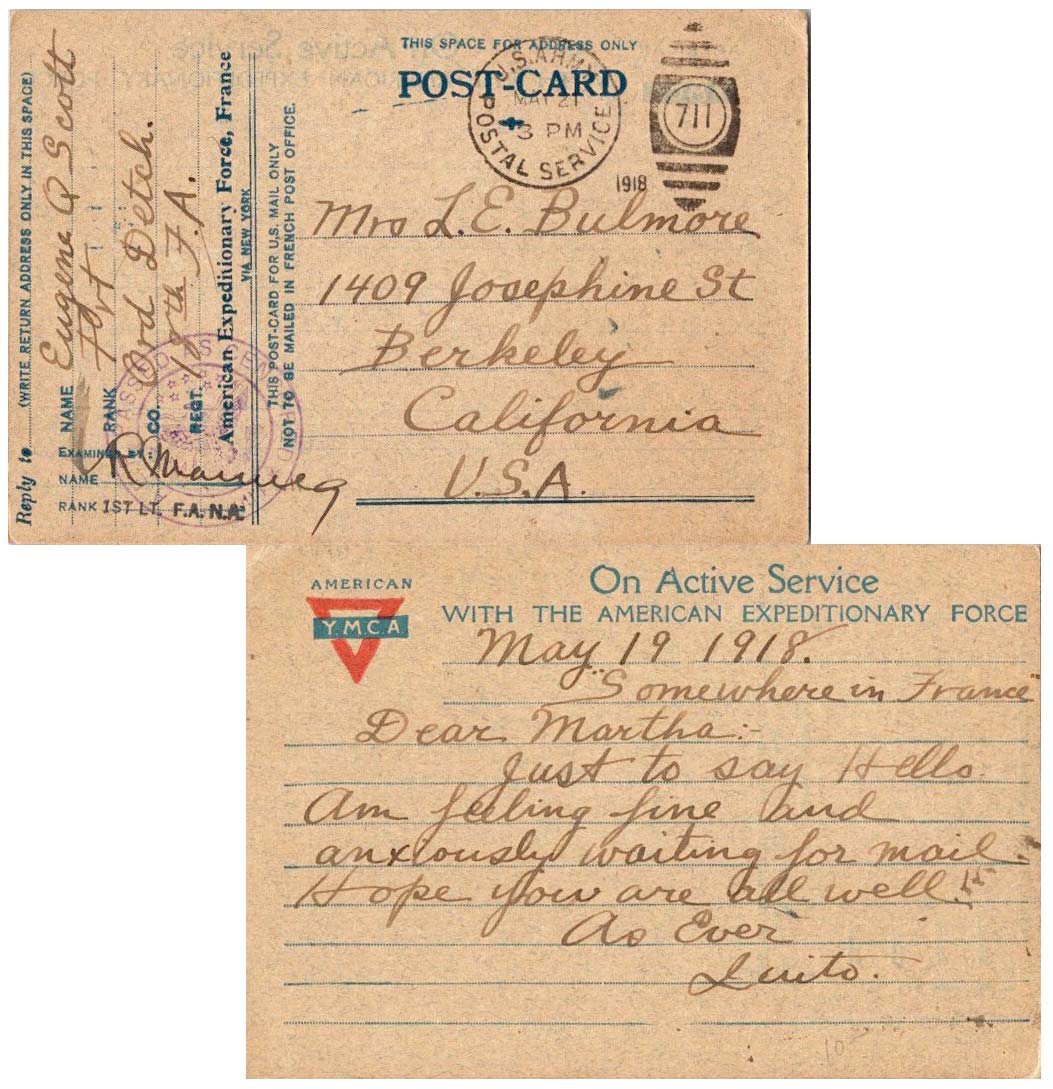 THIS SPACE FOR ADDRESS ONLY
POST-CARD
U.S. ARMY
MAY 21
3 PM
POSTAL SERVICE
1918
711
Mrs L. E. Bulmore
1409 Josephine St
Berkeley
California
U.S.A.
Reply to (WRITE RETURN ADDRESS ONLY IN THIS SPACE)
NAME Eugene Q Scott
RANK Pvt
CO. Ord Detch.
REGT. 18th F.A.
American Expeditionary Force, France
VIA NEW YORK
THIS POST-CARD FOR U.S. MAIL ONLY
NOT TO BE MAILED IN FRENCH POST OFFICE.
EXAMINED BY:
NAME
RANK 1ST LT. F.A. N.A.
PASSED AS CENSORED
AMERICAN
Y.M.C.A.
On Active Service
WITH THE AMERICAN EXPEDITIONARY FORCE
May 19 1918.
"Somewhere in France"
Dear Martha:-
Just to say Hello.
Am feeling fine and
anxiously waiting for mail.
Hope you are all well.
As Ever